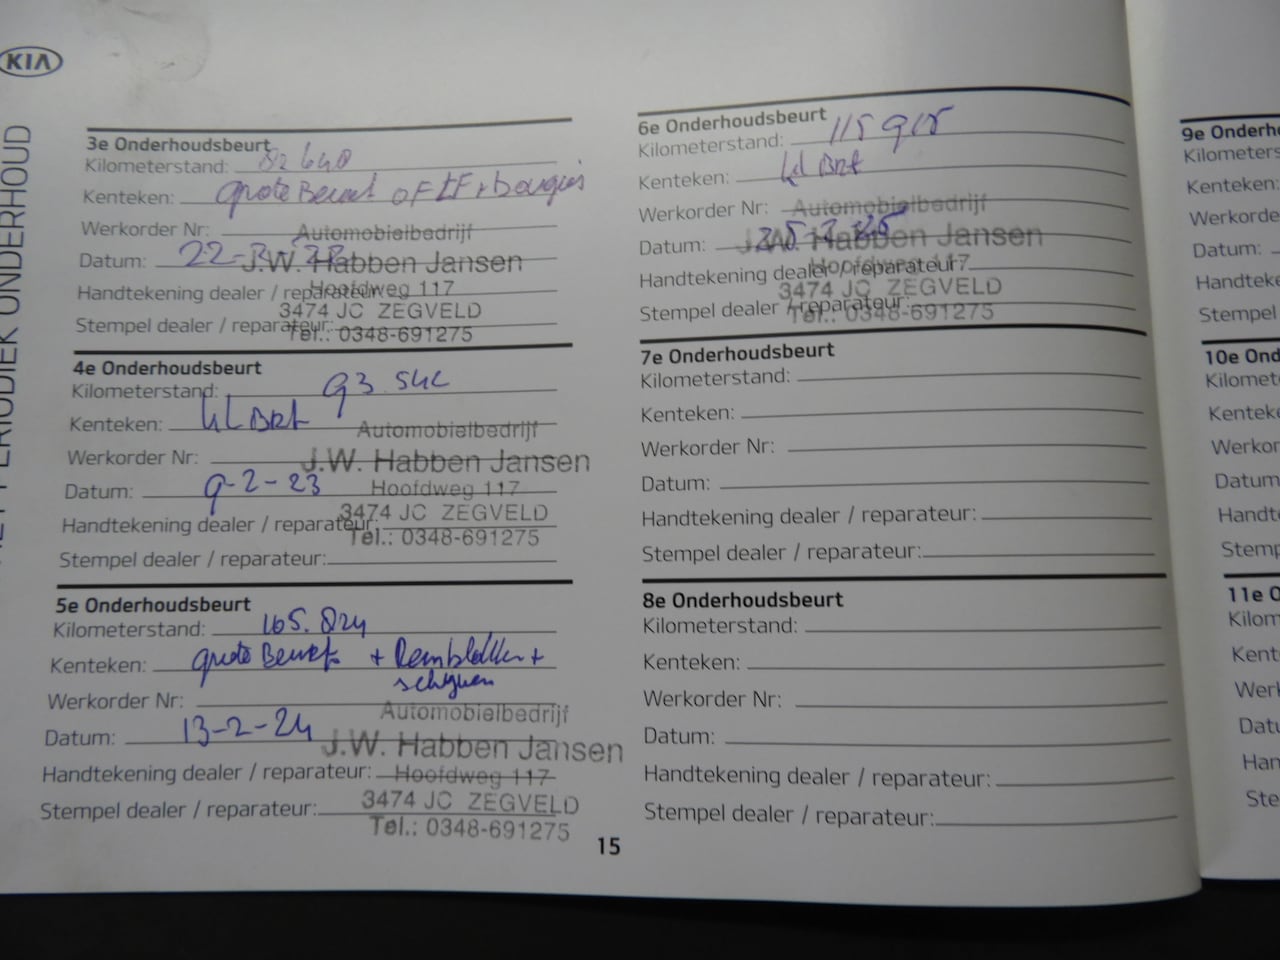 KIA
PERIODIEK ONDERHOUD
3e Onderhoudsbeurt
Kilometerstand: 82 640
Kenteken: grote Beurt OF LF + bougies
Werkorder Nr:
Automobielbedrijf
Datum: 22-
J.W. Habben Jansen
Handtekening dealer / reparateur:
Hoofdweg 117
3474 JC ZEGVELD
Stempel dealer / reparateur:
Tel.: 0348-691275
4e Onderhoudsbeurt
Kilometerstand: 93.542
Kenteken: kl BRt
Automobielbedrijf
Werkorder Nr:
J.W. Habben Jansen
Datum: 9-2-23
Hoofdweg 117
3474 JC ZEGVELD
Handtekening dealer / reparateur:
Tel.: 0348-691275
Stempel dealer / reparateur:
5e Onderhoudsbeurt
Kilometerstand: 105.824
Kenteken: grote Beurt + Remblokken +
schijven
Werkorder Nr:
Automobielbedrijf
Datum: 13-2-24
J.W. Habben Jansen
Handtekening dealer / reparateur:
Hoofdweg 117
3474 JC ZEGVELD
Stempel dealer / reparateur:
Tel.: 0348-691275
15
6e Onderhoudsbeurt
Kilometerstand: 115 915
Kenteken: kl BRt
Werkorder Nr:
Automobielbedrijf
Datum:
J.W. Habben Jansen
Handtekening dealer / reparateur:
Hoofdweg 117
3474 JC ZEGVELD
Stempel dealer / reparateur:
Tel.: 0348-691275
7e Onderhoudsbeurt
Kilometerstand:
Kenteken:
Werkorder Nr:
Datum:
Handtekening dealer / reparateur:
Stempel dealer / reparateur:
8e Onderhoudsbeurt
Kilometerstand:
Kenteken:
Werkorder Nr:
Datum:
Handtekening dealer / reparateur:
Stempel dealer / reparateur:
9e Onderh
Kilometers
Kenteken:
Werkorde
Datum:
Handteke
Stempel
10e Ond
Kilomet
Kenteke
Werkor
Datum
Handt
Stemp
11e O
Kilom
Kent
Werk
Datu
Han
Ste